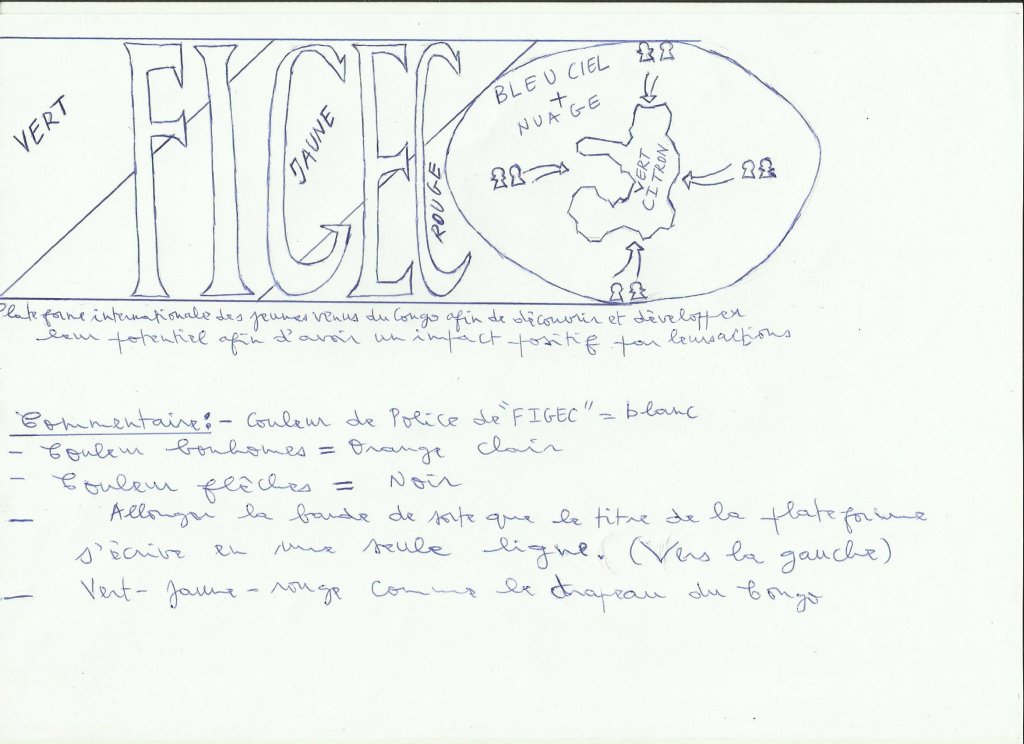 VERT
FIGEC
JAUNE
ROUGE
BLEU CIEL
+
NUAGE
VERT
CITRON
Plateforme internationale des jeunes venus du Congo afin de découvrir et développer
leur potentiel afin d'avoir un impact positif par leurs actions
Commentaire: - Couleur de Police de "FIGEC" = blanc
- Couleur bonhomes = Orange clair
- Couleur flêches = Noir
- Allonger la bande de sorte que le titre de la plateforme
s'écrive en une seule ligne. (Vers la gauche)
- Vert - Jaune - rouge comme le drapeau du Congo